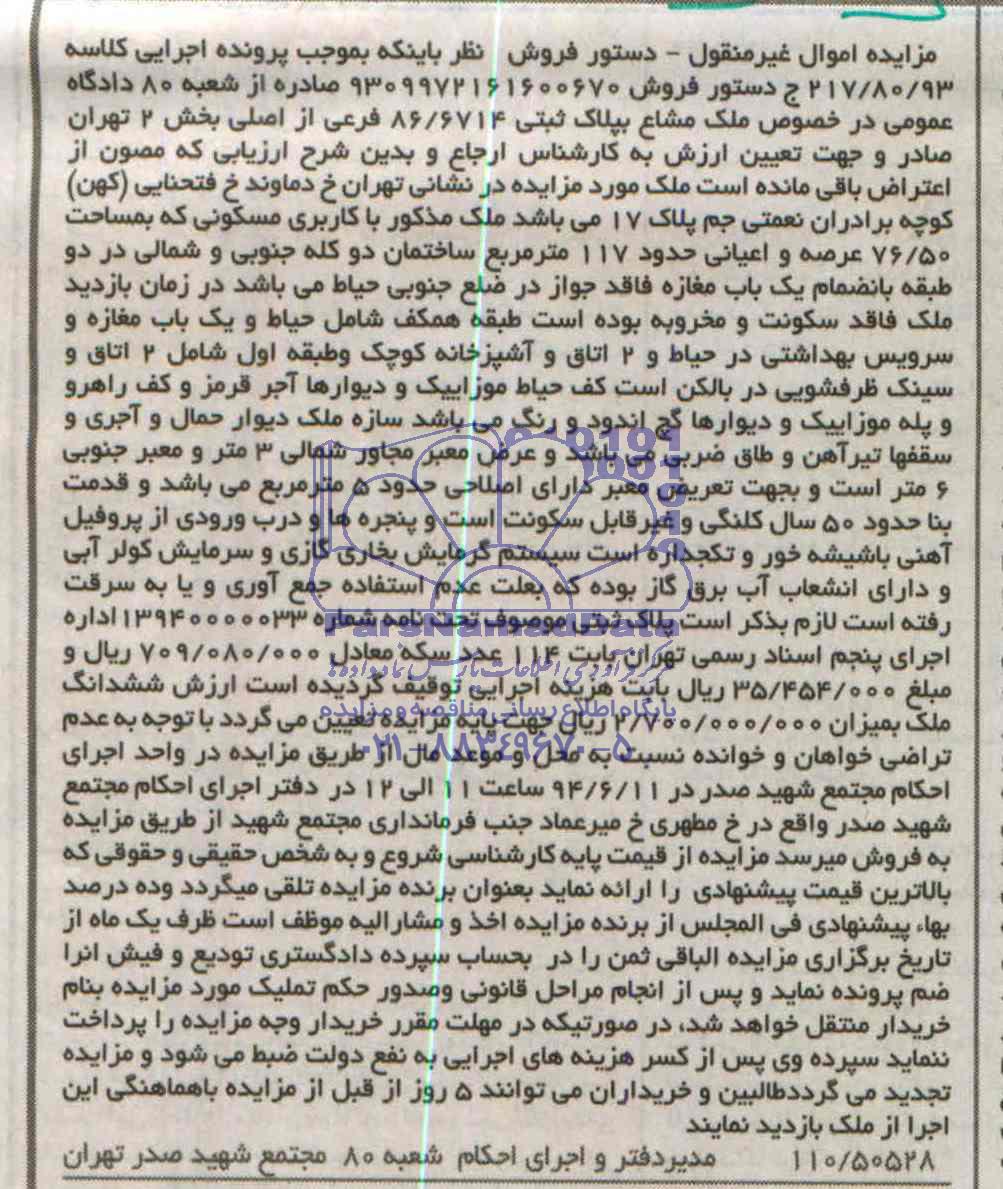 مزایده اموال غیرمنقول - دستور فروش نظر باینکه بموجب پرونده اجرایی کلاسه
۲۱۷/۸۰/۹۳ ج دستور فروش ۹۳۰۹۹۷۲۱۶۱۶۰۰۶۷۰ صادره از شعبه ۸۰ دادگاه
عمومی در خصوص ملک مشاع بپلاک ثبتی ۸۶/۶۷۱۴ فرعی از اصلی بخش ۲ تهران
صادر و جهت تعیین ارزش به کارشناس ارجاع و بدین شرح ارزیابی که مصون از
اعتراض باقی مانده است ملک مورد مزایده در نشانی تهران خ دماوند خ فتحنایی (کهن)
کوچه برادران نعمتی جم پلاک ۱۷ می باشد ملک مذکور با کاربری مسکونی که بمساحت
۷۶/۵۰ عرصه و اعیانی حدود ۱۱۷ مترمربع ساختمان دو کله جنوبی و شمالی در دو
طبقه بانضمام یک باب مغازه فاقد جواز در ضلع جنوبی حیاط می باشد در زمان بازدید
ملک فاقد سکونت و مخروبه بوده است طبقه همکف شامل حیاط و یک باب مغازه و
سرویس بهداشتی در حیاط و ۲ اتاق و آشپزخانه کوچک وطبقه اول شامل ۲ اتاق و
سینک ظرفشویی در بالکن است کف حیاط موزاییک و دیوارها آجر قرمز و کف راهرو
و پله موزاییک و دیوارها گچ اندود و رنگ می باشد سازه ملک دیوار حمال و آجری و
سقفها تیرآهن و طاق ضربی می باشد و عرض معبر مجاور شمالی ۳ متر و معبر جنوبی
۶ متر است و بجهت تعریض معبر دارای اصلاحی حدود ۵ مترمربع می باشد و قدمت
بنا حدود ۵۰ سال کلنگی و غیرقابل سکونت است و پنجره ها و درب ورودی از پروفیل
آهنی باشیشه خور و تکجداره است سیستم گرمایش بخاری گازی و سرمایش کولر آبی
و دارای انشعاب آب برق گاز بوده که بعلت عدم استفاده جمع آوری و یا به سرقت
رفته است لازم بذکر است پلاک ثبتی موصوف تحت نامه شماره ۱۳۹۴۰۰۰۰۰۳۳ اداره
اجرای پنجم اسناد رسمی تهران بابت ۱۱۴ عدد سکه معادل ۷۰۹/۰۸۰/۰۰۰ ریال و
مبلغ ۳۵/۴۵۴/۰۰۰ ریال بابت هزینه اجرایی توقیف گردیده است ارزش ششدانگ
ملک بمیزان ۲/۷۰۰/۰۰۰/۰۰۰ ریال جهت پایه مزایده تعیین می گردد با توجه به عدم
تراضی خواهان و خوانده نسبت به محل و موعد مال از طریق مزایده در واحد اجرای
احکام مجتمع شهید صدر در ۹۴/۶/۱۱ ساعت ۱۱ الی ۱۲ در دفتر اجرای احکام مجتمع
شهید صدر واقع در خ مطهری خ میرعماد جنب فرمانداری مجتمع شهید از طریق مزایده
به فروش میرسد مزایده از قیمت پایه کارشناسی شروع و به شخص حقیقی و حقوقی که
بالاترین قیمت پیشنهادی را ارائه نماید بعنوان برنده مزایده تلقی میگردد وده درصد
بهاء پیشنهادی فی المجلس از برنده مزایده اخذ و مشارالیه موظف است ظرف یک ماه از
تاریخ برگزاری مزایده الباقی ثمن را در بحساب سپرده دادگستری تودیع و فیش انرا
ضم پرونده نماید و پس از انجام مراحل قانونی وصدور حکم تملیک مورد مزایده بنام
خریدار منتقل خواهد شد، در صورتیکه در مهلت مقرر خریدار وجه مزایده را پرداخت
ننماید سپرده وی پس از کسر هزینه های اجرایی به نفع دولت ضبط می شود و مزایده
تجدید می گرددطالبین و خریداران می توانند ۵ روز از قبل از مزایده باهماهنگی این
اجرا از ملک بازدید نمایند
۱۱۰/۵۰۵۲۸ مدیردفتر و اجرای احکام شعبه ۸۰ مجتمع شهید صدر تهران
ParsNamadData
مرکز فرآوری اطلاعات پارس نماد داده ها
پایگاه اطلاع رسانی مناقصه و مزایده
۰۲۱-۸۸۳۴۹۶۷۰-۵